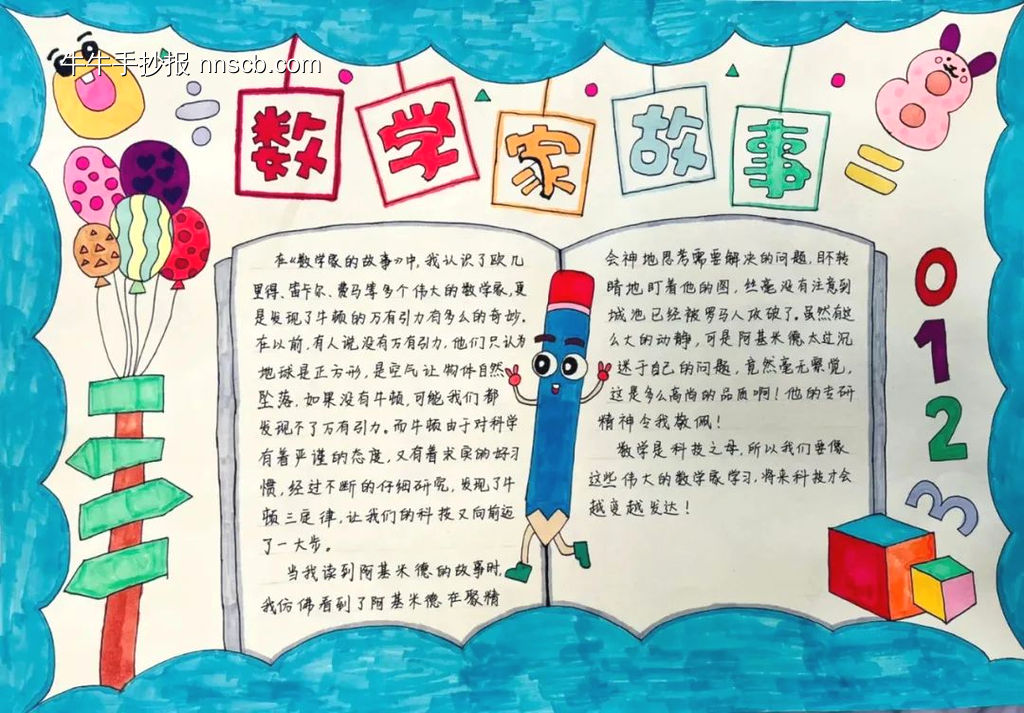 牛牛手抄报 nnscb.com
数学家故事
在《数学家的故事》中,我认识了欧几
里得、笛卡尔、费马等多个伟大的数学家,更
是发现了牛顿的万有引力有多么的奇妙。
在以前,有人说没有万有引力,他们只认为
地球是正方形,是空气让物体自然
坠落,如果没有牛顿,可能我们都
发现不了万有引力。而牛顿由于对科学
有着严谨的态度,又有着求实的好习
惯,经过不断的仔细研究,发现了牛
顿三定律,让我们的科技又向前迈
了一大步。
当我读到阿基米德的故事时,
我仿佛看到了阿基米德在聚精
会神地思考需要解决的问题,目不转
睛地盯着他的图,丝毫没有注意到
城池已经被罗马人攻破了。虽然有这
么大的动静,可是阿基米德太过沉
迷于自己的问题,竟然毫无察觉,
这是多么高尚的品质啊!他的专研
精神令我敬佩!
数学是科技之母,所以我们要像
这些伟大的数学家学习,将来科技才会
越变越发达!
0
1
2
3